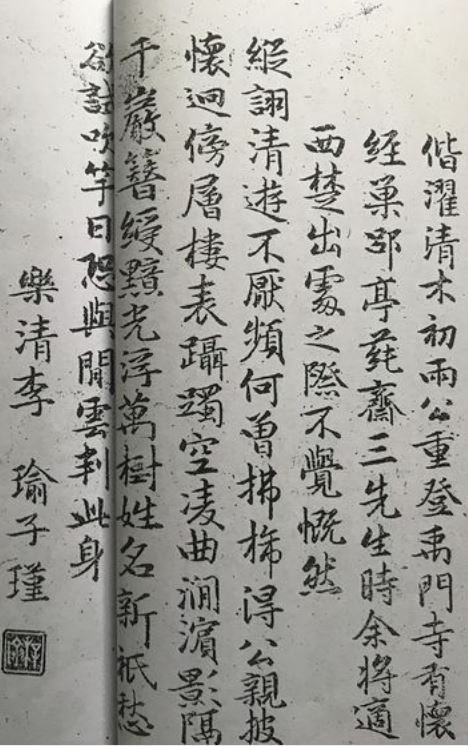 偕濯清木初雨公重登禹門寺有懷
經巢郘亭蒓齋三先生時余將適
西楚出處之際不覺慨然
縱詡清遊不厭頻何曾拂得公親披
懷迥傍層樓表躡躅空凌曲澗濱影隔
千巖簪綬黯光浮萬樹姓名新祇愁
欲試吹竽日恐與閒雲判此身
樂清李 瑜子瑾